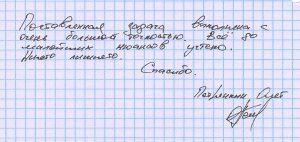 Поставленная задача выполнена с
очень большой точностью. Всё до
малейших нюансов учтено.
Ничего лишнего.
Спасибо.
Олег